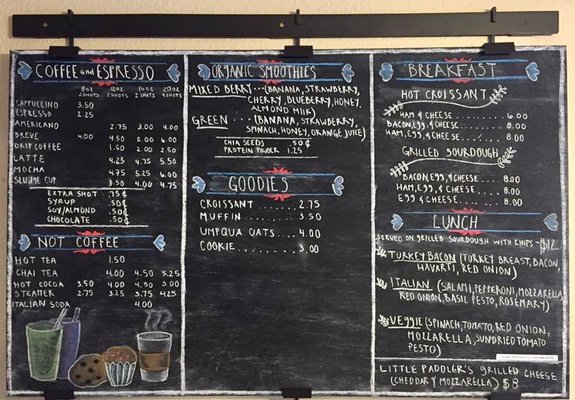 COFFEE and ESPRESSO
8oz 12oz 14oz 20oz
2 SHOTS 2 SHOTS 4 SHOTS
CAPPUCCINO 3.50
ESPRESSO 2.25
AMERICANO 2.75 3.00 4.00
BREVE 4.00 4.50 5.00 6.00
DRIP COFFEE 1.60 2.00 2.50
LATTE 4.25 4.75 5.50
MOCHA 4.75 5.25 6.00
CUP 3.50 4.00 4.75
EXTRA SHOT .75¢
SYRUP .50¢
SOY/ALMOND .50¢
CHOCOLATE .50¢
NOT COFFEE
HOT TEA 1.50
CHAI TEA 4.00 4.50 5.25
HOT COCOA 3.50 4.00 4.50 5.00
STEAMER 2.75 3.25 3.75 4.25
ITALIAN SODA 4.00
ORGANIC SMOOTHIES
MIXED BERRY... (BANANA, STRAWBERRY,
CHERRY, BLUEBERRY, HONEY,
ALMOND MILK)
GREEN ...... (BANANA, STRAWBERRY,
SPINACH, HONEY, ORANGE JUICE)
CHIA SEEDS 50¢
PROTEIN POWDER 1.25
GOODIES
CROISSANT ....... 2.75
MUFFIN ......... 3.50
UMPQUA OATS .... 4.00
COOKIE ......... 3.00
BREAKFAST
HOT CROISSANT
HAM & CHEESE ........ 6.00
BACON, EGG, & CHEESE ..... 8.00
HAM, EGG, & CHEESE ...... 8.00
GRILLED SOURDOUGH
BACON, EGG, & CHEESE .... 8.00
HAM, EGG, & CHEESE ..... 8.00
EGG & CHEESE ......... 8.00
LUNCH
SERVED ON GRILLED SOURDOUGH WITH CHIPS - $12
TURKEY BACON (TURKEY BREAST, BACON
HAVARTI, RED ONION)
ITALIAN (SALAMI, PEPPERONI, MOZZARELLA,
RED ONION, BASIL PESTO, ROSEMARY)
VEGGIE (SPINACH, TOMATO, RED ONION,
MOZZARELLA, SUNDRIED TOMATO
PESTO)
LITTLE PADDLER'S GRILLED CHEESE
(CHEDDAR & MOZZARELLA) $8